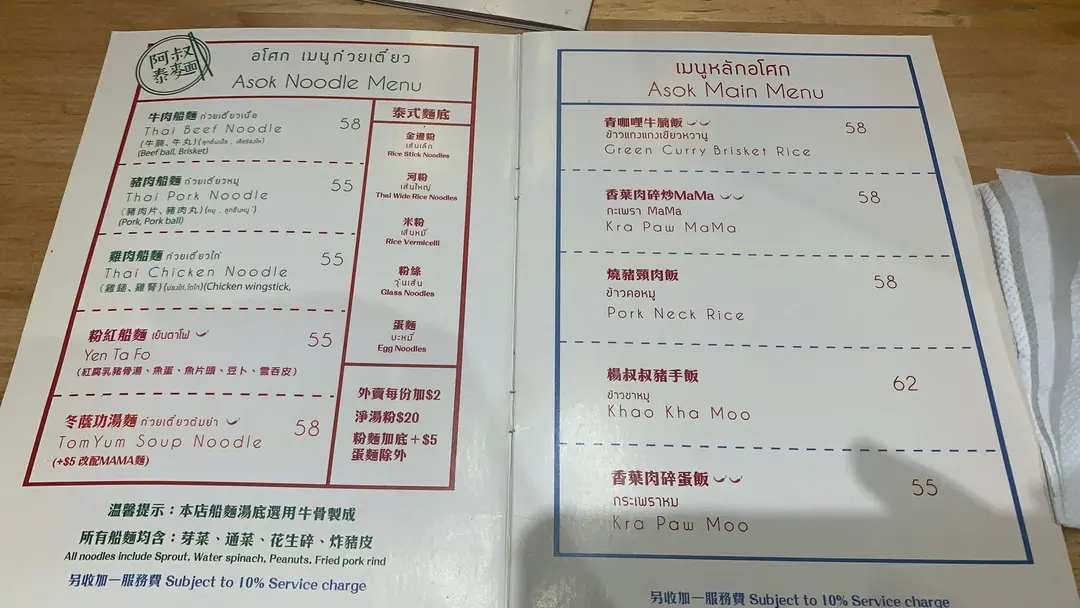 阿叔
泰麵
อโศก เมนูก๋วยเตี๋ยว
Asok Noodle Menu
牛肉船麵 ก๋วยเตี๋ยวเนื้อ
Thai Beef Noodle
58
(牛腩、牛丸)
(Beef ball, Brisket)
豬肉船麵 ก๋วยเตี๋ยวหมู
Thai Pork Noodle
55
(豬肉片、豬肉丸)
(Pork, Pork ball)
雞肉船麵 ก๋วยเตี๋ยวไก่
Thai Chicken Noodle
55
(雞鎚、雞腎) (Chicken wingstick,
粉紅船麵 เย็นตาโฟ
Yen Ta Fo
55
(紅腐乳豬骨湯、魚蛋、魚片頭、豆卜、雲吞皮)
冬蔭功湯麵 ก๋วยเตี๋ยวต้มยำ
TomYum Soup Noodle
58
(+$5 改配MAMA麵)
泰式麵底
金邊粉
เส้นเล็ก
Rice Stick Noodles
河粉
เส้นใหญ่
Thai Wide Rice Noodles
米粉
เส้นหมี่
Rice Vermicelli
粉絲
วุ้นเส้น
Glass Noodles
蛋麵
บะหมี่
Egg Noodles
外賣每份加$2
淨湯粉$20
粉麵加底+$5
蛋麵除外
溫馨提示：本店船麵湯底選用牛骨製成
所有船麵均含：芽菜、通菜、花生碎、炸豬皮
All noodles include Sprout, Water spinach, Peanuts, Fried pork rind
另收加一服務費 Subject to 10% Service charge
เมนูหลักอโศก
Asok Main Menu
青咖哩牛腩飯
ข้าวแกงแกงเขียวหวานู
Green Curry Brisket Rice
58
香葉肉碎炒MaMa
กะเพรา MaMa
Kra Paw MaMa
58
燒豬頸肉飯
ข้าวคอหมู
Pork Neck Rice
58
楊叔叔豬手飯
ข้าวขาหมู
Khao Kha Moo
62
香葉肉碎蛋飯
กระเพราหม
Kra Paw Moo
55
另收加一服務費 Subject to 10% Service charge